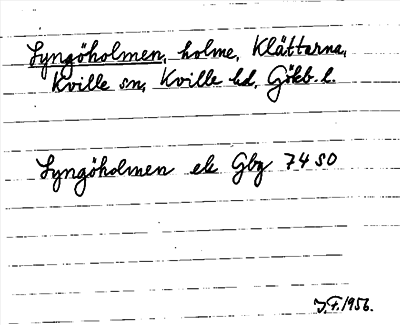 Lyngöholmen, holme, Klättarna,
Kville sn, Kville hd, Göteb. l.
Lyngöholmen ek Gbg 74 SO
J.F. 1956.